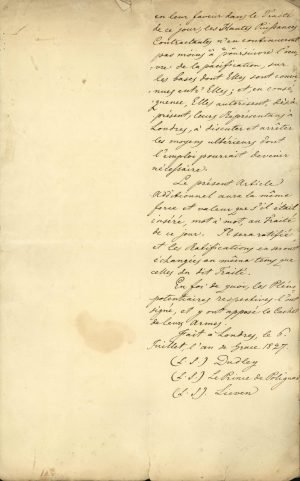 en leur faveur dans le Traité
de ce jour, les Hautes Puissances
Contractantes n'en continueront
pas moins à poursuivre l'oeu-
vre de la pacification, sur
les bases dont Elles sont conve-
nues entr'Elles; et, en consé-
quence, Elles autorisent, dès à
présent, leurs Représentans à
Londres, à discuter et arrêter
les moyens ultérieurs dont
l'emploi pourrait devenir
nécessaire.
Le présent Article
Additionnel aura la même
force et valeur que s'il était
inséré, mot à mot, au Traité
de ce jour. Il sera ratifié
et les Ratifications en seront
échangées en même tems que
celles du dit Traité.
En foi de quoi, les Pléni-
potentiaires respectives l'ont
signé, et y ont apposé le Cachet
de leurs Armes.
Fait à Londres, le 6
Juillet, l'an de Grace 1827.
(L.S.) Dudley
(L.S.) Le Prince de Polignac
(L.S.) Lieven